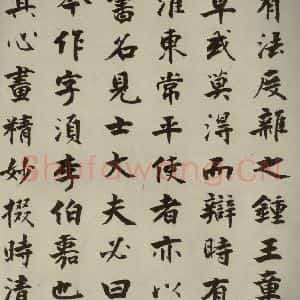 有法度雜之鍾王童
草或莫淂而辯時有
淮東常平使者亦以
書名見士大夫必曰
本作字須李伯嘉也
其心畫精妙掇時清
Shufawang.CN